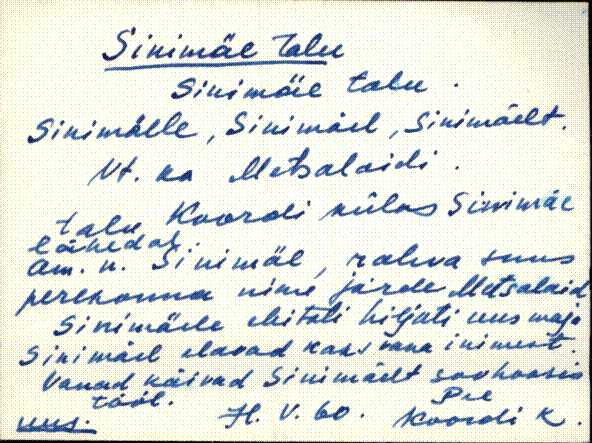 Sinimäe talu
Sinimäe talu.
Sinimälle, Sinimäel, Sinimäelt.
Vt. ka Metsalaidi.
talu Koordi külas Sinimäe
lähedal.
Am. n. Sinimäe, rahva suus
perekonna nime järele Metsalaid
Sinimäele ehitati hiljuti uus maja
Sinimäel elavad kaks vana inimest.
Vanad käivad Sinimäelt sovhoosis
tööl.
uus. H. V. 60. Pee
Koordi k.